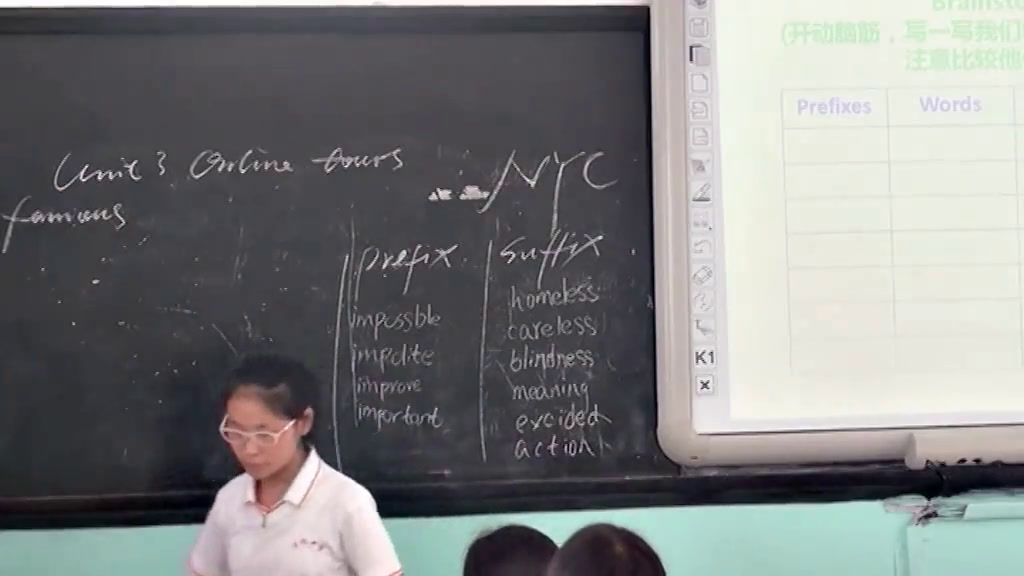 Unit 3 Online tours
NYC
famious
prefix
suffix
impossible
impolite
improve
important
homeless
careless
blindness
meaning
excided
action
Brainsto
(开动脑筋，写一写我们
注意比较他
Prefixes
Words
K1